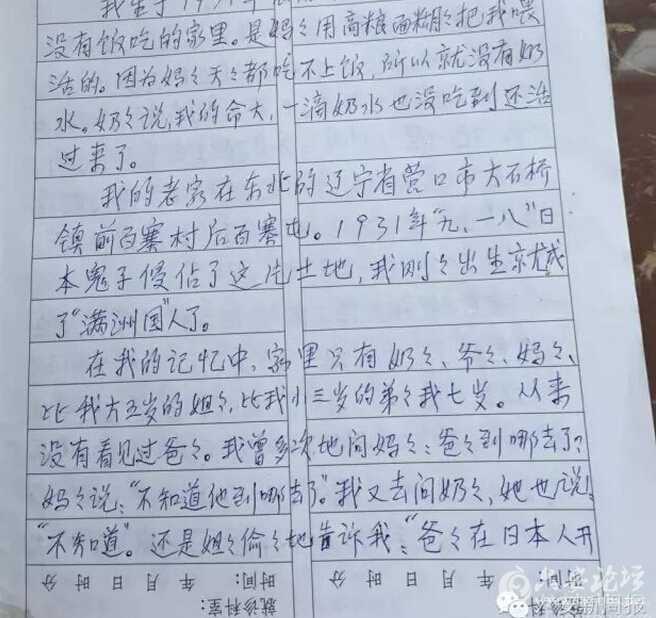 我生于1931年
没有饭吃的家里。是妈々用高粮面糊々把我喂
活的。因为妈々天々都吃不上饭，所以就没有奶
水。奶々说，我的命大，一滴奶水也没吃到还活
过来了。
我的老家在东北的辽宁省营口市大石桥
镇前百寨村后百寨屯。1931年“九、一八”日
本鬼子侵佔了这片土地，我刚々出生就成
了“满洲国”人了。
在我的记忆中，家里只有奶々、爷々、妈々、
比我大五岁的姐々，比我小三岁的弟々我七岁。从来
没有看见过爸々。我曾多次地问妈々：爸々到哪去了？
妈々说：“不知道他到哪去了”。我又去问奶々，她也说：
“不知道”。还是姐々偷々地告诉我：“爸々在日本人开
时间： 年 月 日 时 分
时间： 年 月 日 时 分
就诊科室：
就诊科室：
论坛
新周报